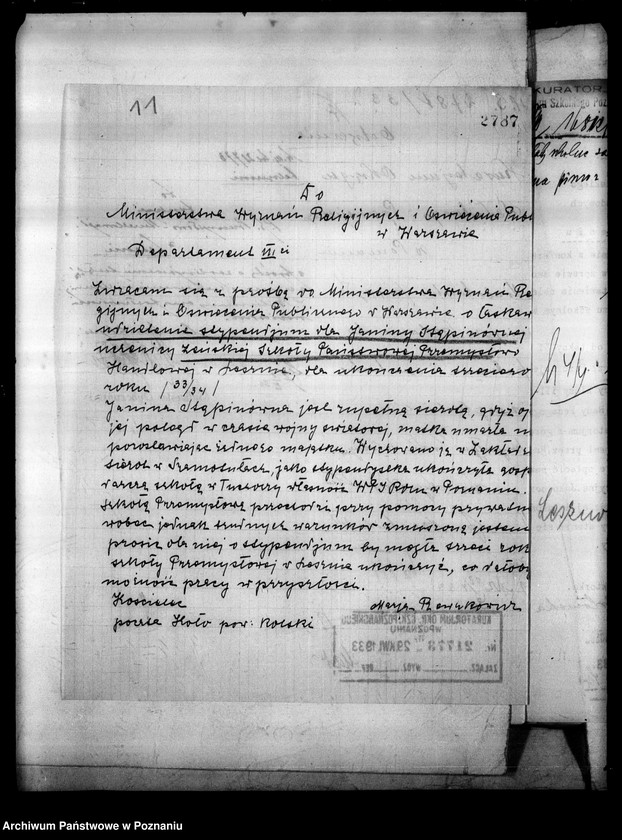 11
2787
Do
Ministerstwa Wyznań Religijnych i Oświecenia Publ
w Warszawie
Departament III ci
Zwracam się z prośbą do Ministerstwa Wyznań Re
gijnych i Oświecenia Publicznego w Warszawie o łaskaw
udzielenie stypendjum dla Janiny Stąpinówny
uczenicy Żeńskiej Szkoły Państwowej Przemysłowo
Handlowej w Lesznie, dla ukończenia trzeciego
roku / 33/34 /
Janina Stąpinówna jest zupełną sierotą, gdyż oj
jej poległ w czasie wojny światowej, matka umarła n
pozostawiając żadnego majątku. Wychowano ją w Zakładzie
sierot w Szamotułach, jako stypendystka ukończyła gosp
szkołę w własność W.P.I Roln w Poznaniu.
Szkołę Przemysłową przechodzi przy pomocy prywatn
wobec jednak trudnych warunków zmuszoną jestem
prosić dla niej o stypendjum by mogła trzeci rok
szkoły Przemysłowej w Lesznie ukończyć, co dałoby
możność pracy w przyszłości.
Kościelec
poczta Koło pow: Kolski
KURATORJUM OKR. SZK. POZNAŃSKIEGO
W POZNANIU
Nr. 21773 29.XVI.1933
ZAŁĄCZ. WYDZ. REF.
KURATOR
Szkolnego Poz
Leszno
Archiwum Państwowe w Poznaniu